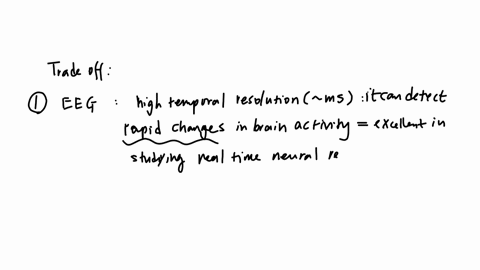 Trade off:
① EEG : high temporal resolution (~ms) : it can detect
rapid changes in brain activity = excellent in
studying real time neural re